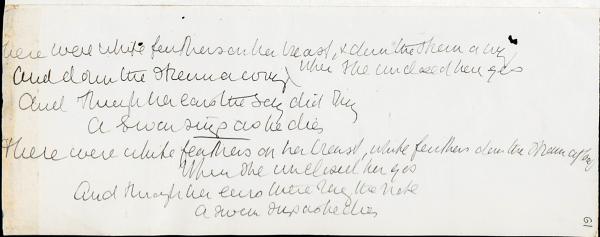 There were white feathers on her breast, & down the stream a cry
And down the stream a cry When she unclosed her eyes
And Through her ears the song did
A Swan sings as he dies
There were white feathers on her breast, white feathers down the stream
When she unclosed her eyes
And through her ears there rang the note
A swan sings as he dies
61